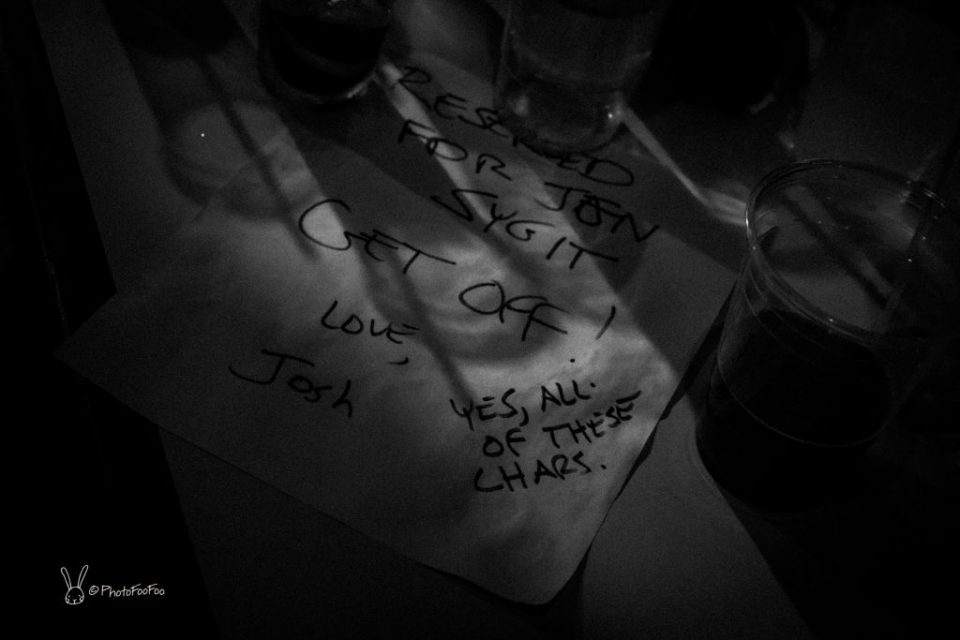 RESERVED
FOR JEN
SYGIT
GET
OFF!
LOVE,
Josh
YES, ALL.
OF THESE
CHARS.
© PhotoFooFoo